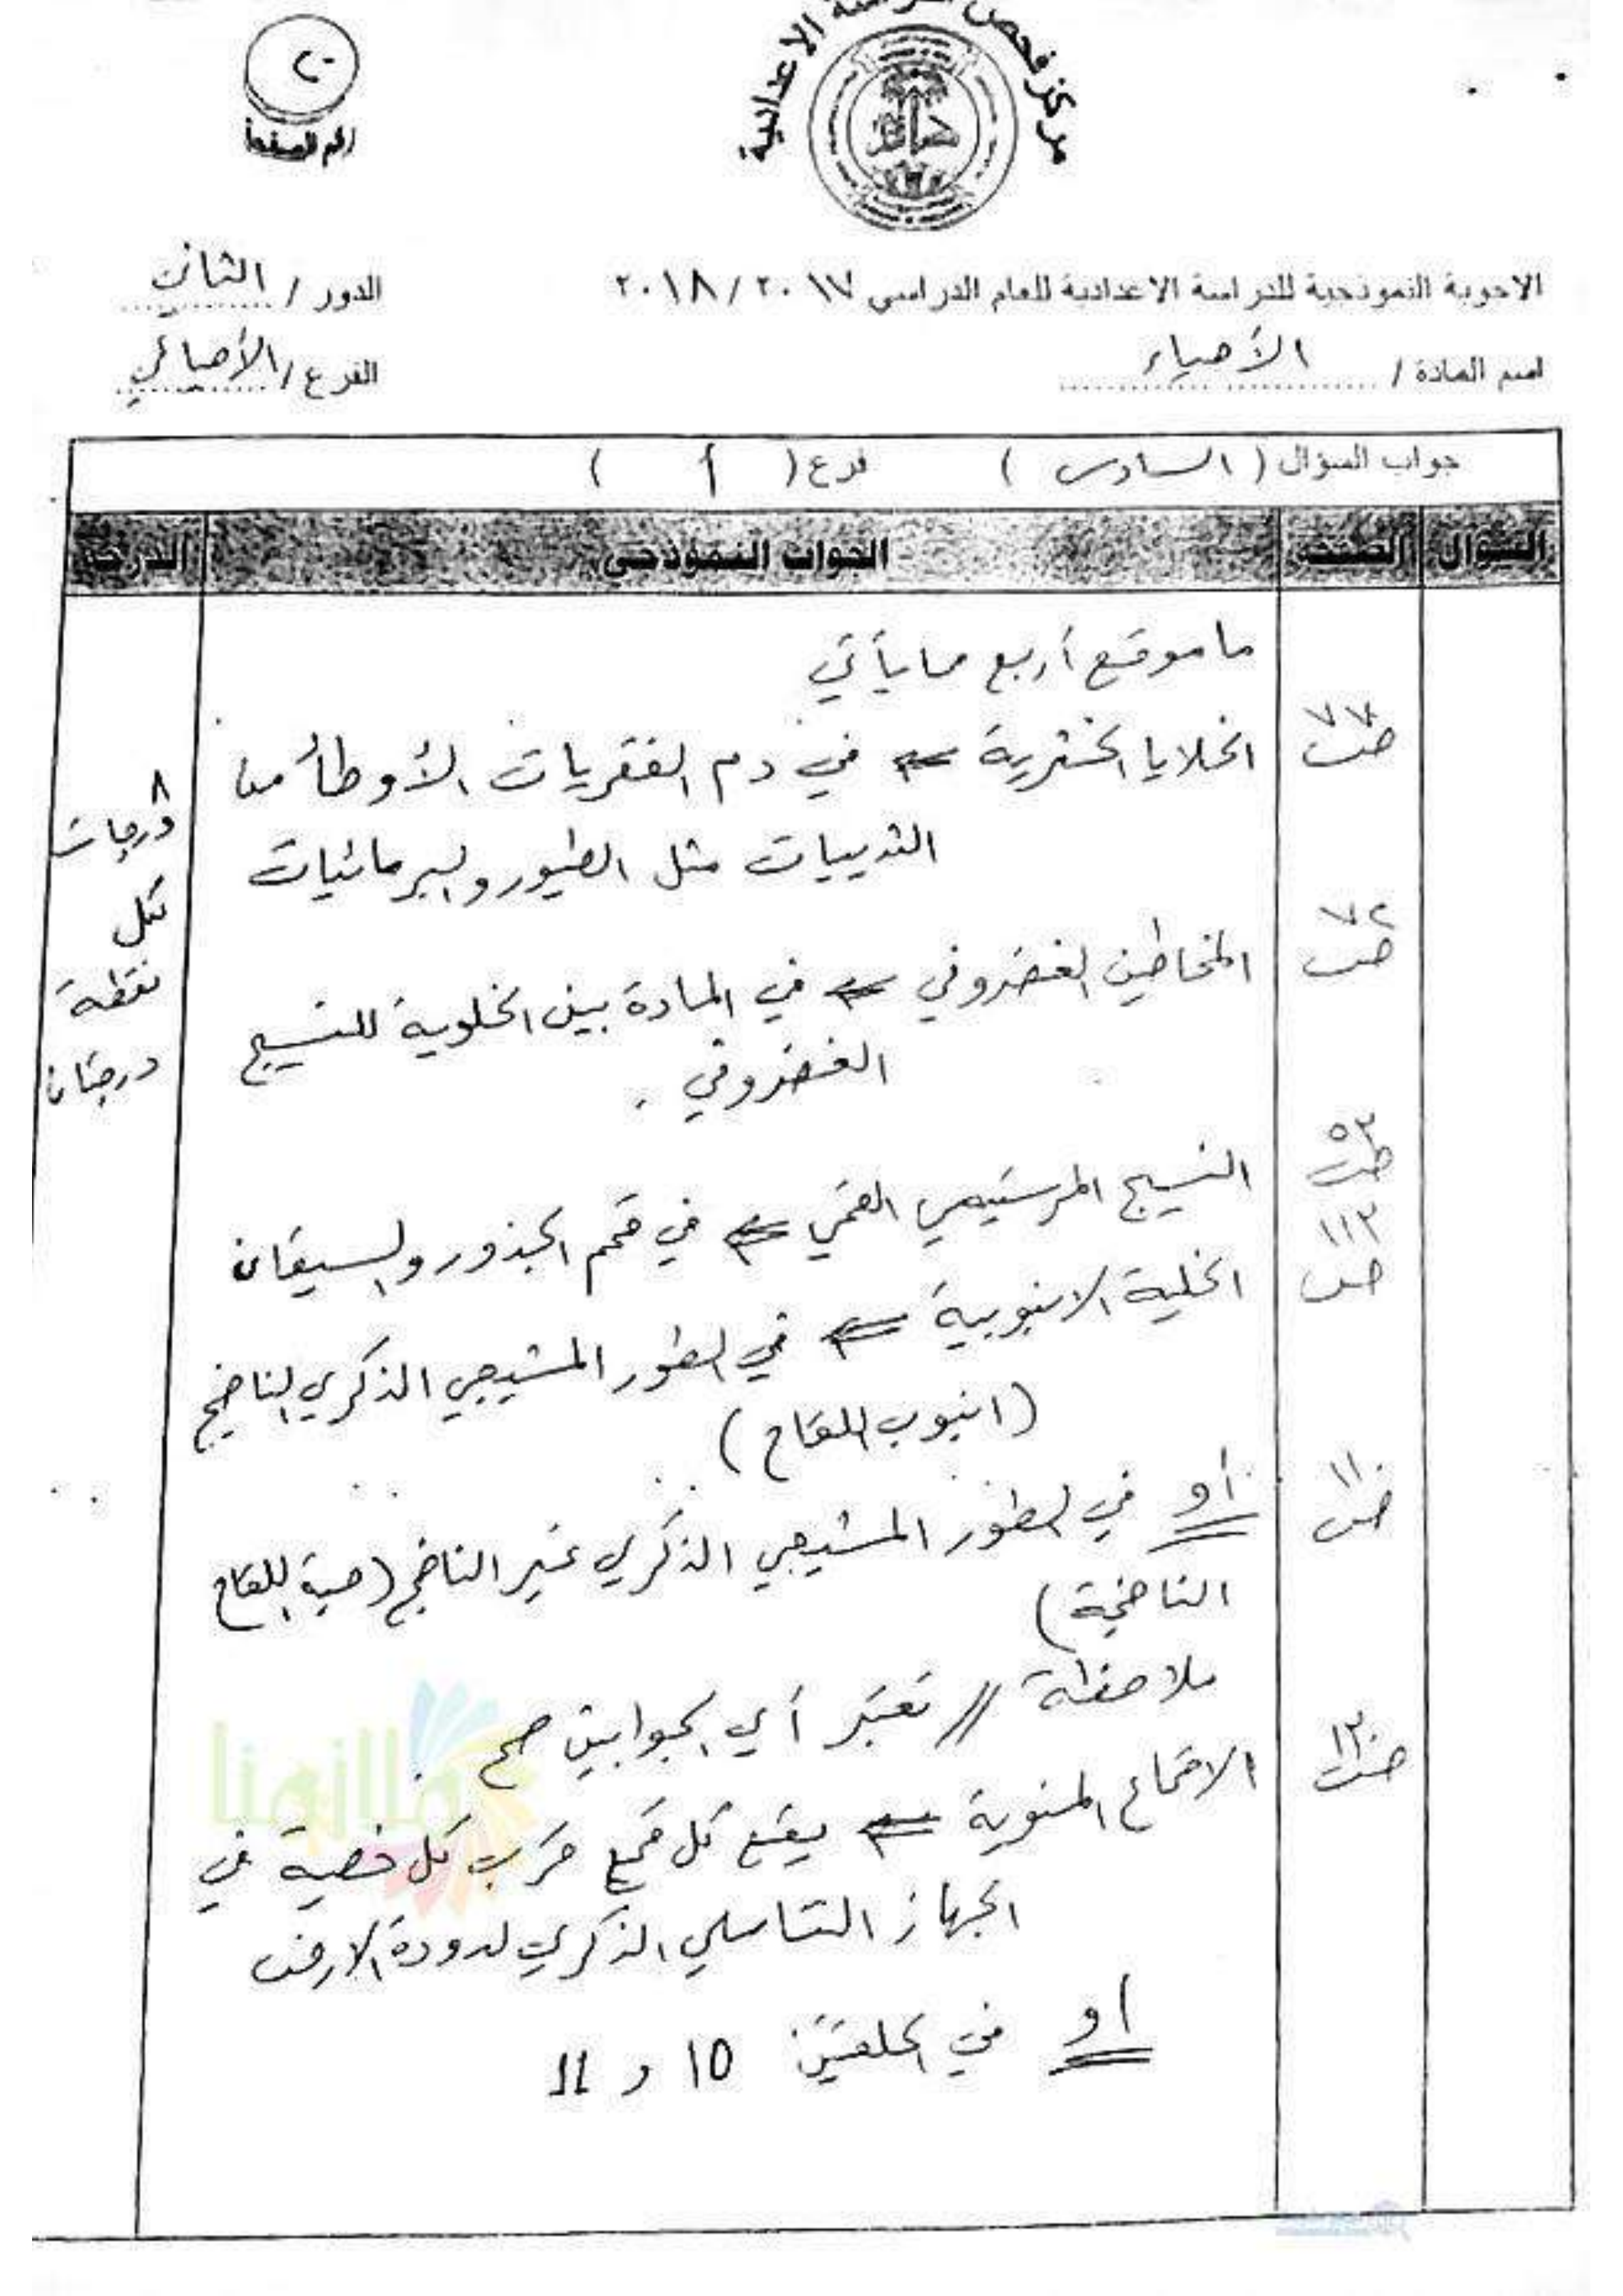 ٢٠
رقم الصفحة
مركز فحص الدراسة الاعدادية
الاجوبة النموذجية للدراسة الاعدادية للعام الدراسي ٢٠١٧ / ٢٠١٨
الدور / الثاني
اسم المادة / الأحياء
الفرع / الأحيائي
جواب السؤال ( السادس ) فرع ( أ )
السؤال الصفحة الجواب النموذجي الدرجة
ما موقع أربع مما يأتي
ص٧٧ الخلايا الخثرية ⇐ في دم الفقريات الأوطأ من
الثدييات مثل الطيور والبرمائيات
ص٧٢ المخاطين الغضروفي ⇐ في المادة بين الخلوية للنسيج
الغضروفي .
ص٥٣ النسيج المرستيمي القمي ⇐ في قمم الجذور والسيقان
ص١١٢ الخلية الانبوبية ⇐ في الطور المشيجي الذكري الناضج
(انبوب اللقاح)
ص١١٠ أو في الطور المشيجي الذكري غير الناضج (حبة اللقاح
الناضجة)
ملاحظة // تعتبر أي الجوابين صح .
ص١٣٠ الاقماع المنوية ⇐ يقع كل قمع قرب كل خصية في
الجهاز التناسلي الذكري لدودة الارض
او في الحلقتين 10 و 11
٨
درجات
لكل
نقطة
درجتان
ملازمنا